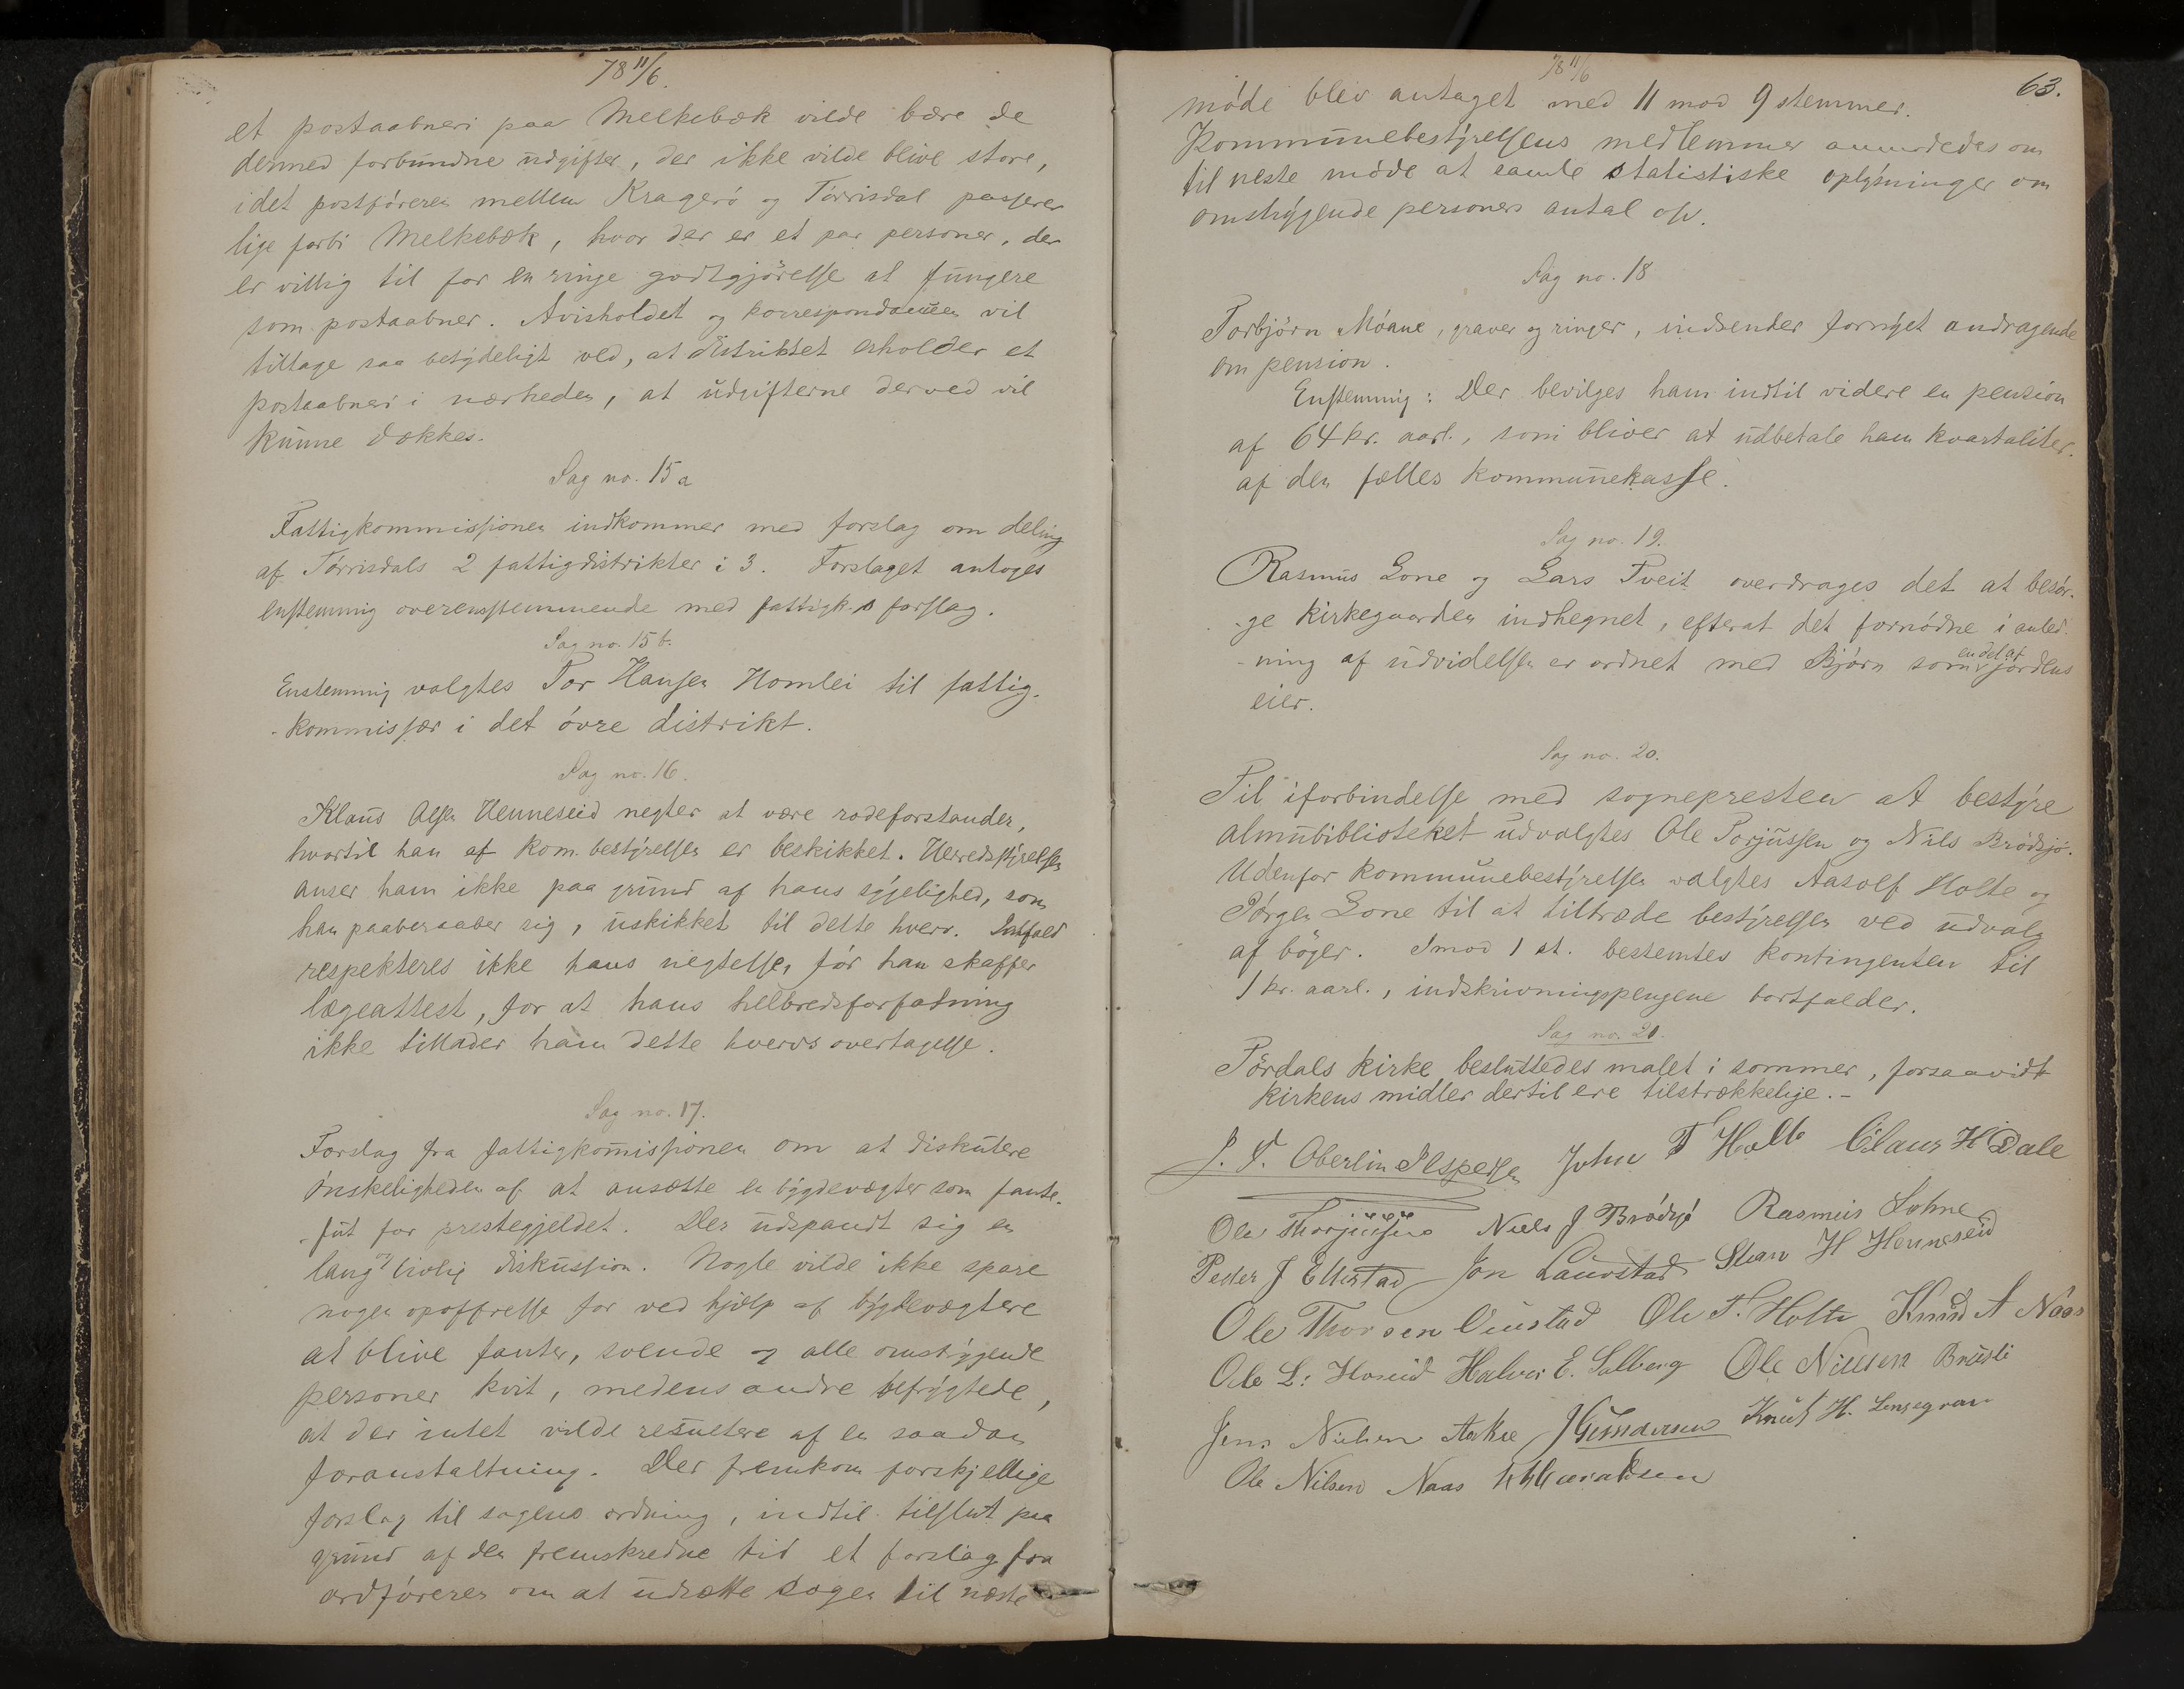 78 11/6.
et postaabneri paa Melkebæk vilde bære de
dermed forbundne udgifter, der ikke vilde blive store,
idet postføreren mellem Kragerø og Tørrisdal passerer
lige forbi Melkebæk, hvor der er et par personer, der
er villig til for en ringe godtgjørelse at fungere
som postaabner. Avisholdet og korrespondancen vil
tiltage saa betydeligt ved, at distriktet erholder et
postaabneri i nærheden, at udgifterne derved vil
kunne dækkes.
Sag no. 15 a
Fattigkommissionen indkommer med forslag om deling
af Tørrisdals 2 fattigdistrikter i 3. Forslaget antoges
enstemmig overensstemmende med fattigk.s forslag.
Sag no. 15 b.
Enstemmig valgtes Tor Hansen Homlei til fattig-
-kommissær i det øvre distrikt.
Sag no. 16.
Klaus Olsen Henneseid negter at være rodeforstander,
hvortil han af kom. bestyrelsen er beskikket. Herredsstyrelsen
anser ham ikke paa grund af hans sygelighed, som
han paaberaaber sig, uskikket til dette hverv. Ialfald
respekteres ikke hans negtelse, før han skaffer
lægeattest, for at hans helbredsforfatning
ikke tillader ham dette hvervs overtagelse.
Sag no. 17.
Forslag fra fattigkommissionen om at diskutere
ønskeligheden af at ansætte en bygdevægter som fante-
-fut for prestegjeldet. Der udspandt sig en
lang og livlig diskussion. Nogle vilde ikke spare
nogen opoffrelse for ved hjælp af bygdevægtere
at blive fanter, svende og alle omstrygende
personer kvit, medens andre befrygtede,
at der intet vilde resultere af en saadan
foranstaltning. Der fremkom forskjellige
forslag til sagens ordning, indtil tilslut paa
grund af den fremskredne tid et forslag fra
ordføreren om at udsætte sagen til næste
78 11/6
63.
møde blev antaget med 11 mod 9 stemmer.
Kommunebestyrelsens medlemmer anmodedes om
til neste møde at samle statistiske oplysninger om
omstrygende personers antal osv.
Sag no. 18
Torbjørn Moane, graver og ringer, indsender fornyet andragende
om pension.
Enstemmig: Der bevilges ham indtil videre en pension
af 64 kr. aarl., som bliver at udbetale ham kvartaliter.
af den fælles kommunekasse.
Sag no. 19.
Rasmus Lone og Lars Tveit overdrages det at besør-
-ge kirkegaarden indhegnet, efterat det fornødne i anled-
-ning af udvidelsen er ordnet med Bjørn som en del af jordens
eier.
Sag no. 20.
Til iforbindelse med sognepresten at bestyre
almubiblioteket udvalgtes Ole Torjussen og Nils Brødsjø.
Udenfor kommunebestyrelsen valgtes Aasolf Holte og
Jørgen Lone til at tiltræde bestyrelsen ved udvalg
af bøger. Imod 1 st. bestemtes kontingenten til
1 kr. aarl., indskrivningspengene bortfalder.
Sag no. 21.
Tørdals kirke besluttedes malet i sommer, forsaavidt
kirkens midler dertil ere tilstrækkelige.-
J. F. Oberlin Jespersen John T Holte Claus H Dale
Ole Thorjussen Niels J Brødsjø Rasmus Lohne
Peder J Ellestad Jon Lauvstad H Henneseid
Ole Thorsen Ole T. Holte Knud A Naas
Ole L: Hoseid Halvor E. Solberg Ole Nielsen
Jens Nielsen Knut H.
Ole Nilsen Naas